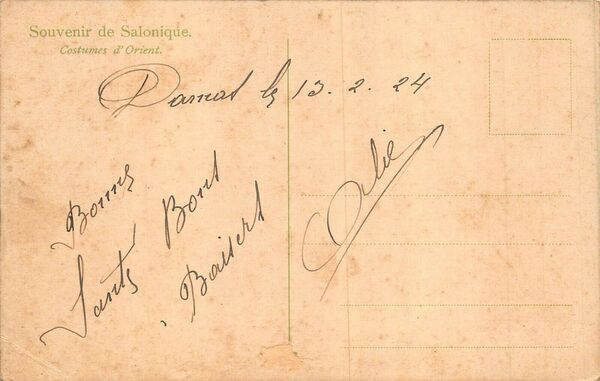 Souvenir de Salonique.
Costumes d'Orient.
Damas le 13. 2. 24
Bonne
Santé Bont
Baisert